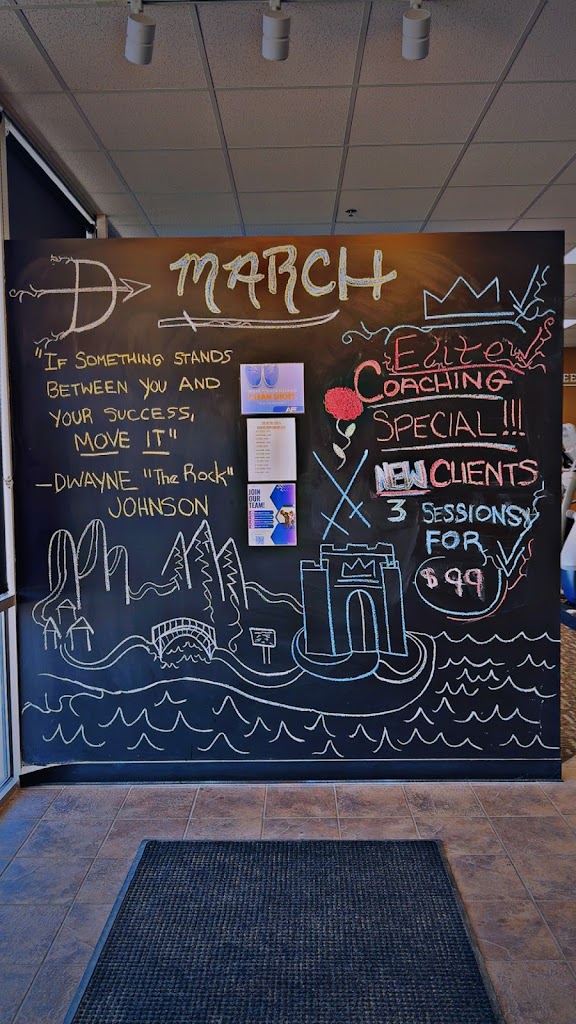 MARCH
"IF SOMETHING STANDS
BETWEEN YOU AND
YOUR SUCCESS,
MOVE IT"
-DWAYNE "The Rock"
JOHNSON
CLEAN SHOES
JOIN
OUR
TEAM!
Elite
COACHING
SPECIAL!!!
NEW CLIENTS
3 SESSIONS
FOR
$99